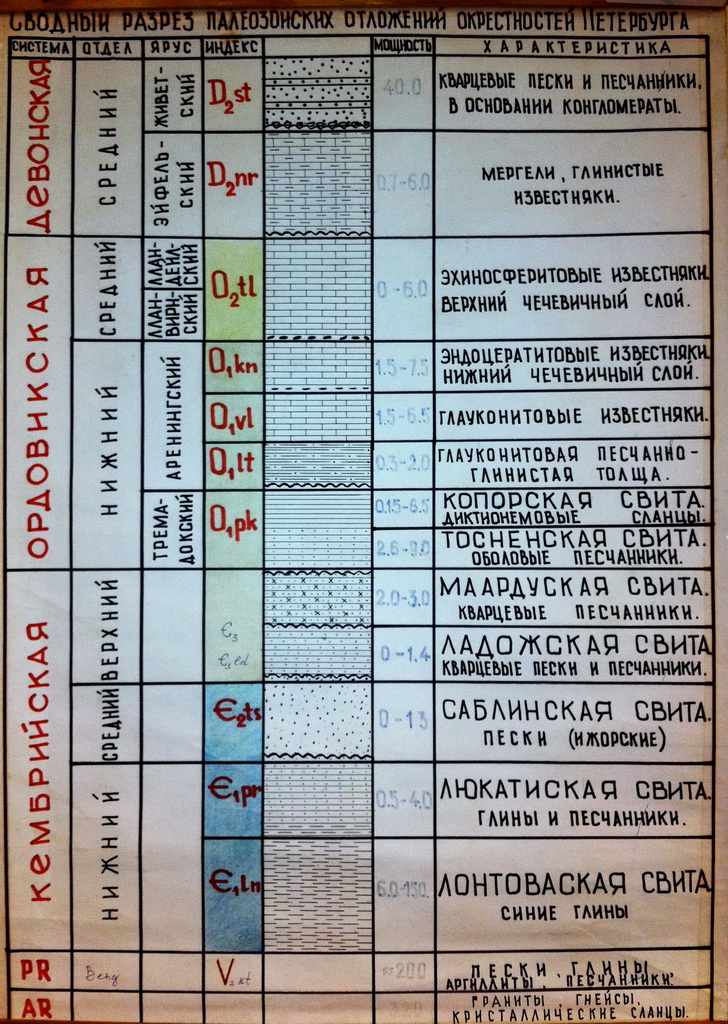 СВОДНЫЙ РАЗРЕЗ ПАЛЕОЗОЙСКИХ ОТЛОЖЕНИЙ ОКРЕСТНОСТЕЙ ПЕТЕРБУРГА
СИСТЕМА ОТДЕЛ ЯРУС ИНДЕКС МОЩНОСТЬ ХАРАКТЕРИСТИКА
ДЕВОНСКАЯ
СРЕДНИЙ
ЖИВЕТ-
СКИЙ
D2st
40.0
КВАРЦЕВЫЕ ПЕСКИ И ПЕСЧАННИКИ,
В ОСНОВАНИИ КОНГЛОМЕРАТЫ.
ЭЙФЕЛЬ-
СКИЙ
D2nr
0.7-6.0
МЕРГЕЛИ, ГЛИНИСТЫЕ
ИЗВЕСТНЯКИ.
ОРДОВИКСКАЯ
СРЕДНИЙ
ЛЛАН-
ДЕЙЛ-
СКИЙ
ЛЛАН-
ВИРН-
СКИЙ
O2tl
0-6.0
ЭХИНОСФЕРИТОВЫЕ ИЗВЕСТНЯКИ.
ВЕРХНИЙ ЧЕЧЕВИЧНЫЙ СЛОЙ.
НИЖНИЙ
АРЕНИНГСКИЙ
O1kn
1.5-7.5
ЭНДОЦЕРАТИТОВЫЕ ИЗВЕСТНЯКИ.
НИЖНИЙ ЧЕЧЕВИЧНЫЙ СЛОЙ.
O1vl
1.5-6.5
ГЛАУКОНИТОВЫЕ ИЗВЕСТНЯКИ.
O1lt
0.3-2.0
ГЛАУКОНИТОВАЯ ПЕСЧАННО-
ГЛИНИСТАЯ ТОЛЩА.
ТРЕМА-
ДОКСКИЙ
O1pk
0.15-6.5
КОПОРСКАЯ СВИТА.
ДИКТИОНЕМОВЫЕ СЛАНЦЫ.
2.6-9.0
ТОСНЕНСКАЯ СВИТА.
ОБОЛОВЫЕ ПЕСЧАННИКИ.
КЕМБРИЙСКАЯ
ВЕРХНИЙ
Є3
2.0-3.0
МААРДУСКАЯ СВИТА.
КВАРЦЕВЫЕ ПЕСЧАННИКИ.
Є3ld
0-1.4
ЛАДОЖСКАЯ СВИТА
КВАРЦЕВЫЕ ПЕСКИ И ПЕСЧАННИКИ.
СРЕДНИЙ
Є2ts
0-13
САБЛИНСКАЯ СВИТА.
ПЕСКИ (ИЖОРСКИЕ)
НИЖНИЙ
Є1pr
0.5-4.0
ЛЮКАТИСКАЯ СВИТА.
ГЛИНЫ И ПЕСЧАННИКИ.
Є1ln
6.0-150.
ЛОНТОВАСКАЯ СВИТА
СИНИЕ ГЛИНЫ
PR
Венд
V2kt
≈200
ПЕСКИ, ГЛИНЫ
АРГИЛЛИТЫ, ПЕСЧАННИКИ.
AR
ГРАНИТЫ, ГНЕЙСЫ,
КРИСТАЛЛИЧЕСКИЕ СЛАНЦЫ.